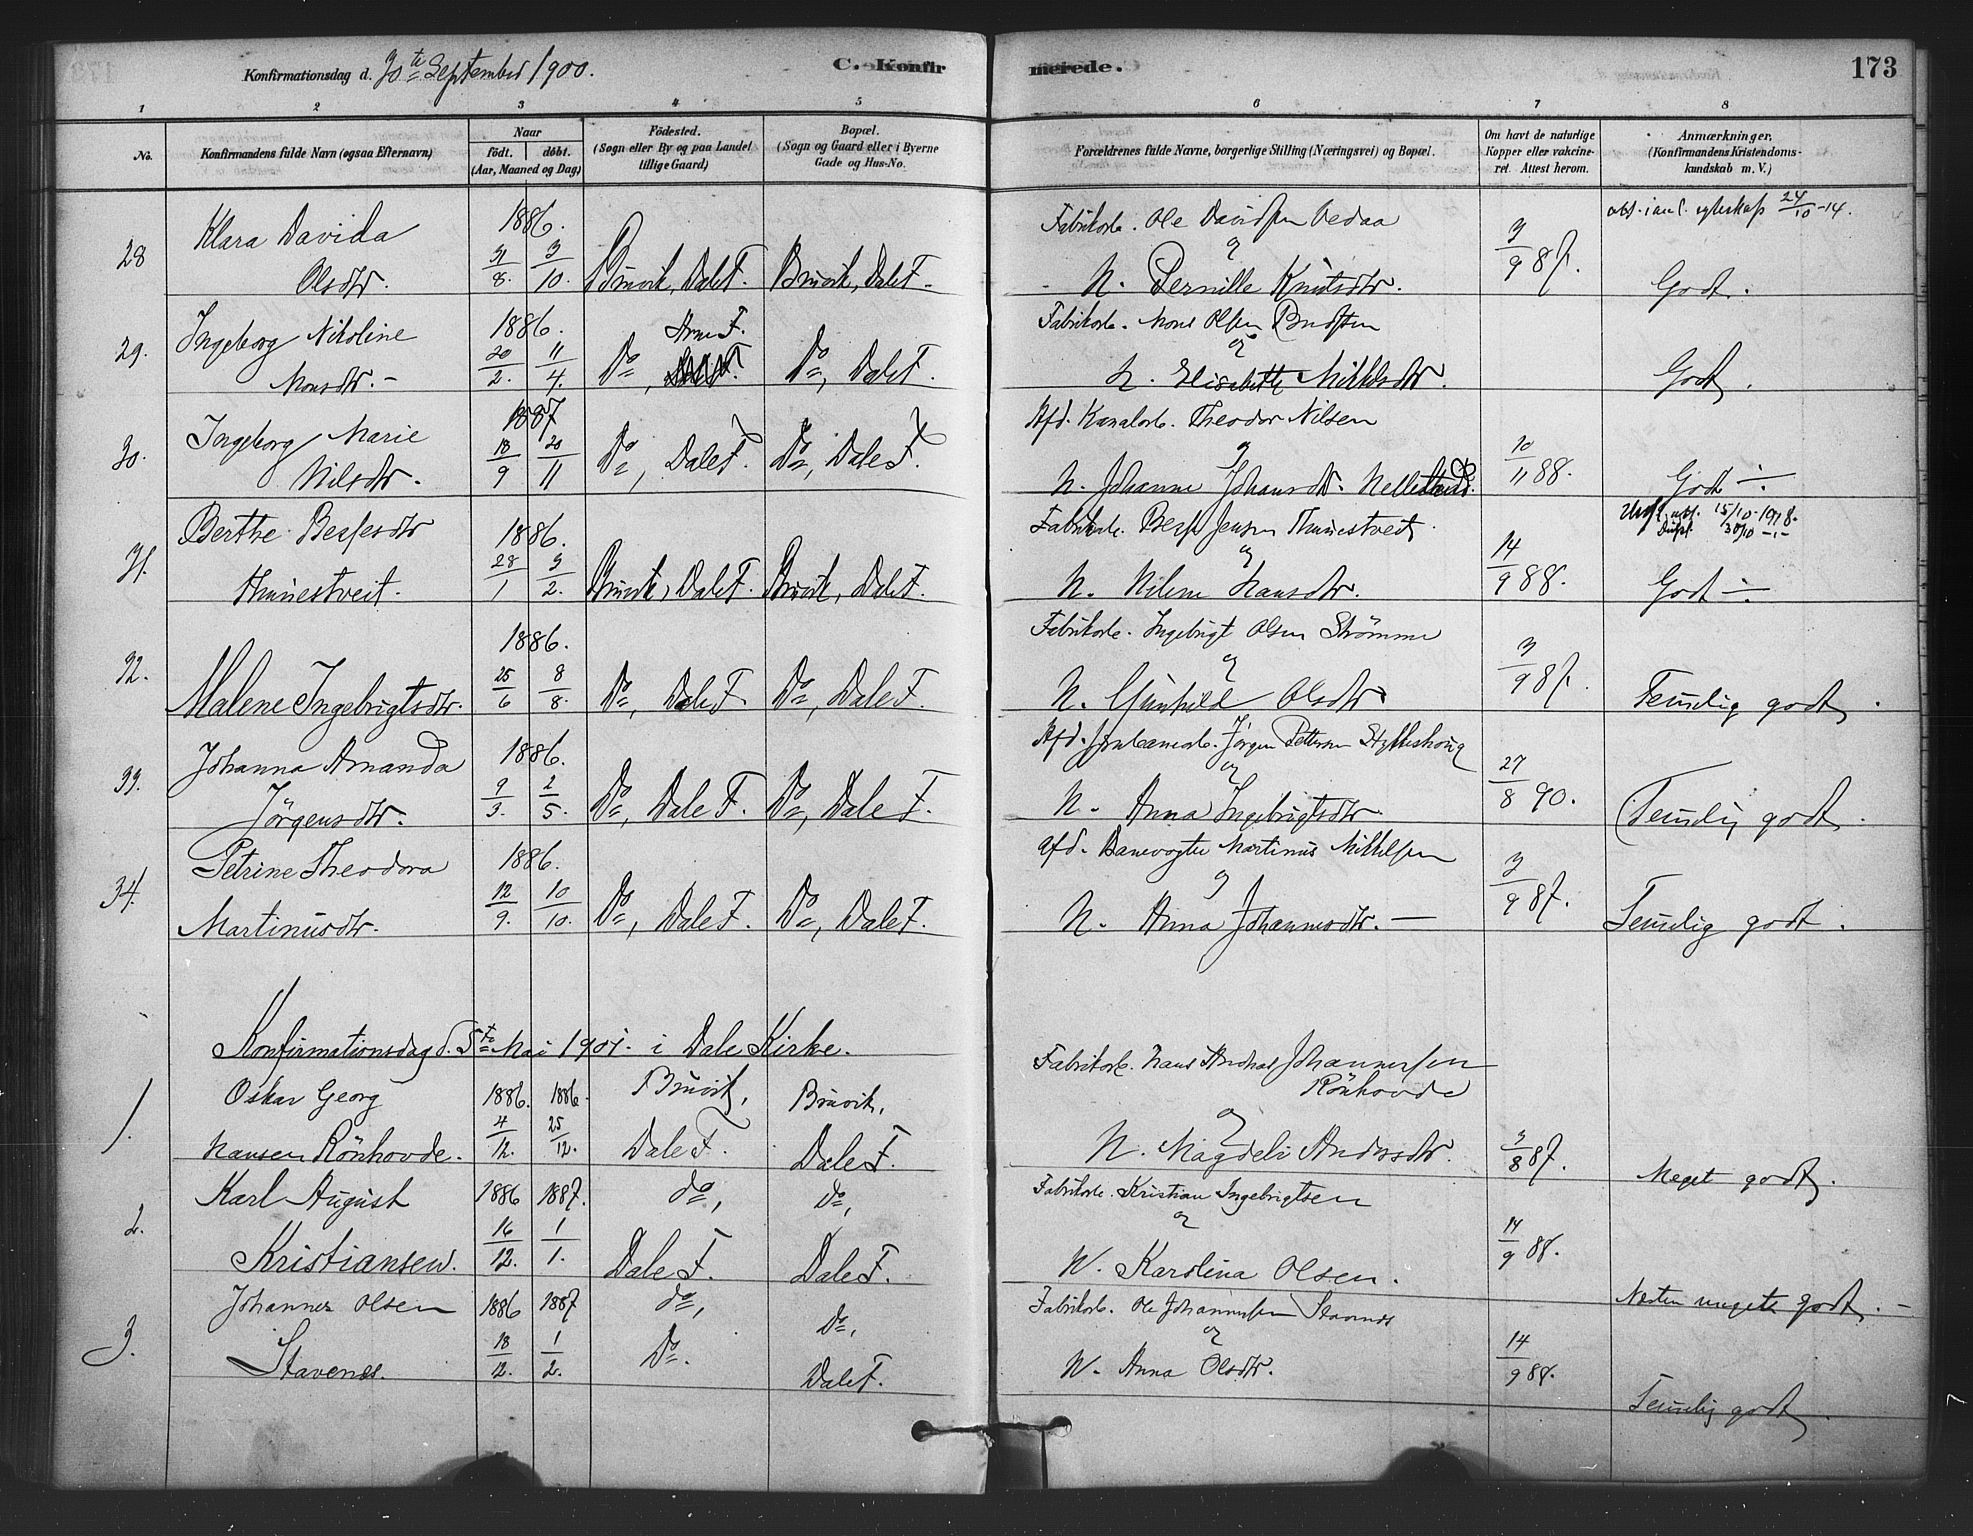 Konfirmationsdag d. 30te September 1900.
C. Konfirmerede.
173
1 2 3 4 5 6 7 8
No.
Konfirmandens fulde Navn (ogsaa Efternavn)
Naar
födt. döbt.
(Aar, Maaned og Dag)
Födested.
(Sogn eller By og paa Landet
tillige Gaard)
Bopæl.
(Sogn og Gaard eller i Byerne
Gade og Hus-No.
Forældrenes fulde Navne, borgerlige Stilling (Næringsvei) og Bopæl.
Om havt de naturlige
Kopper eller vakcine-
ret. Attest herom.
Anmærkninger,
(Konfirmandens Kristendoms-
kundskab m. V.)
28 Klara Davida
Olsdtr.
1886.
31/8. 3/10.
Bruvik, Dale F. Bruvik, Dale F.
Fabrikarb. Ole Davidsen Vedaa
og
H. Pernille Knutsdtr.
3/9 87.
att. i anl. egteskap 24/10-14.
Godt.
29. Ingeborg Nikoline
Monsdtr. -
1886.
20/2. 11/4.
Arne F.
Do, Do, Dale F.
Fabrikarb. Mons Olsen
og
H. Elisabeth Mikkelsdtr.
Godt.
30. Ingeborg Marie
Nilsdtr.
1887
18/9 20/11
Do, Dale F. Do, Dale F.
Afd. Kanalarb. Theodor Nilsen
og
H. Johanne Johansdtr.
10/11 88.
Godt -
31. Berthe Besjesdtr
Thunestveit.
1886.
28/1 3/2.
Bruvik, Dale F. Bruvik, Dale F.
Fabrikarb. Besje Jensen Thunestveit.
og
H. Nilene Hansdtr.
14/9 88.
15/10-1918.
30/10 -"-
Godt -
32. Malene Ingebrigtsdtr.
1886.
25/6 8/8.
Do, Dale F. Do, Dale F.
Fabrikarb. Ingebrigt Olsen Strömme
og
H. Gunhild Olsdtr
3/9 87.
Temelig godt.
33. Johanna Amanda
Jörgensdtr.
1886.
9/3. 2/5.
Do, Dale F. Do, Dale F.
Afd. Jernbanearb. Jörgen Pettersen
og
H. Anna Ingebrigtsdtr.
27/8 90.
Temelig godt.
34. Petrine Theodora
Martinusdtr.
1886.
12/9. 10/10.
Do, Dale F. Do, Dale F.
Afd. Banevogter Martinus Mikkelsen
og
H. Anna Johannesdtr. -
3/9 87.
Temelig godt.
Konfirmationsdag d. 5te Mai 1901. i Dale Kirke.
1. Oskar Georg
Hansen Rönhovde.
1886. 1886.
4/12. 25/12.
Bruvik,
Dale F.
Bruvik,
Dale F.
Fabrikarb. Hans Andreas Johannessen
Rönhovde
og
H. Magdeli Andersdtr.
3/8 87.
Meget godt.
2. Karl August
Kristiansen.
1886 1887.
16/12. 1/1.
do,
Dale F.
Do,
Dale F.
Fabrikarb. Kristian Ingebrigtsen
og
H. Karolina Olsen.
14/9 88.
Næsten meget godt. -
3. Johannes Olsen
Stavenes.
1886 1887
18/12. 1/2.
do,
Do.
Do,
Dale F.
Fabrikarb. Ole Johannessen Stavenes
og
H. Anna Olsdtr.
14/9 88.
Temelig godt.